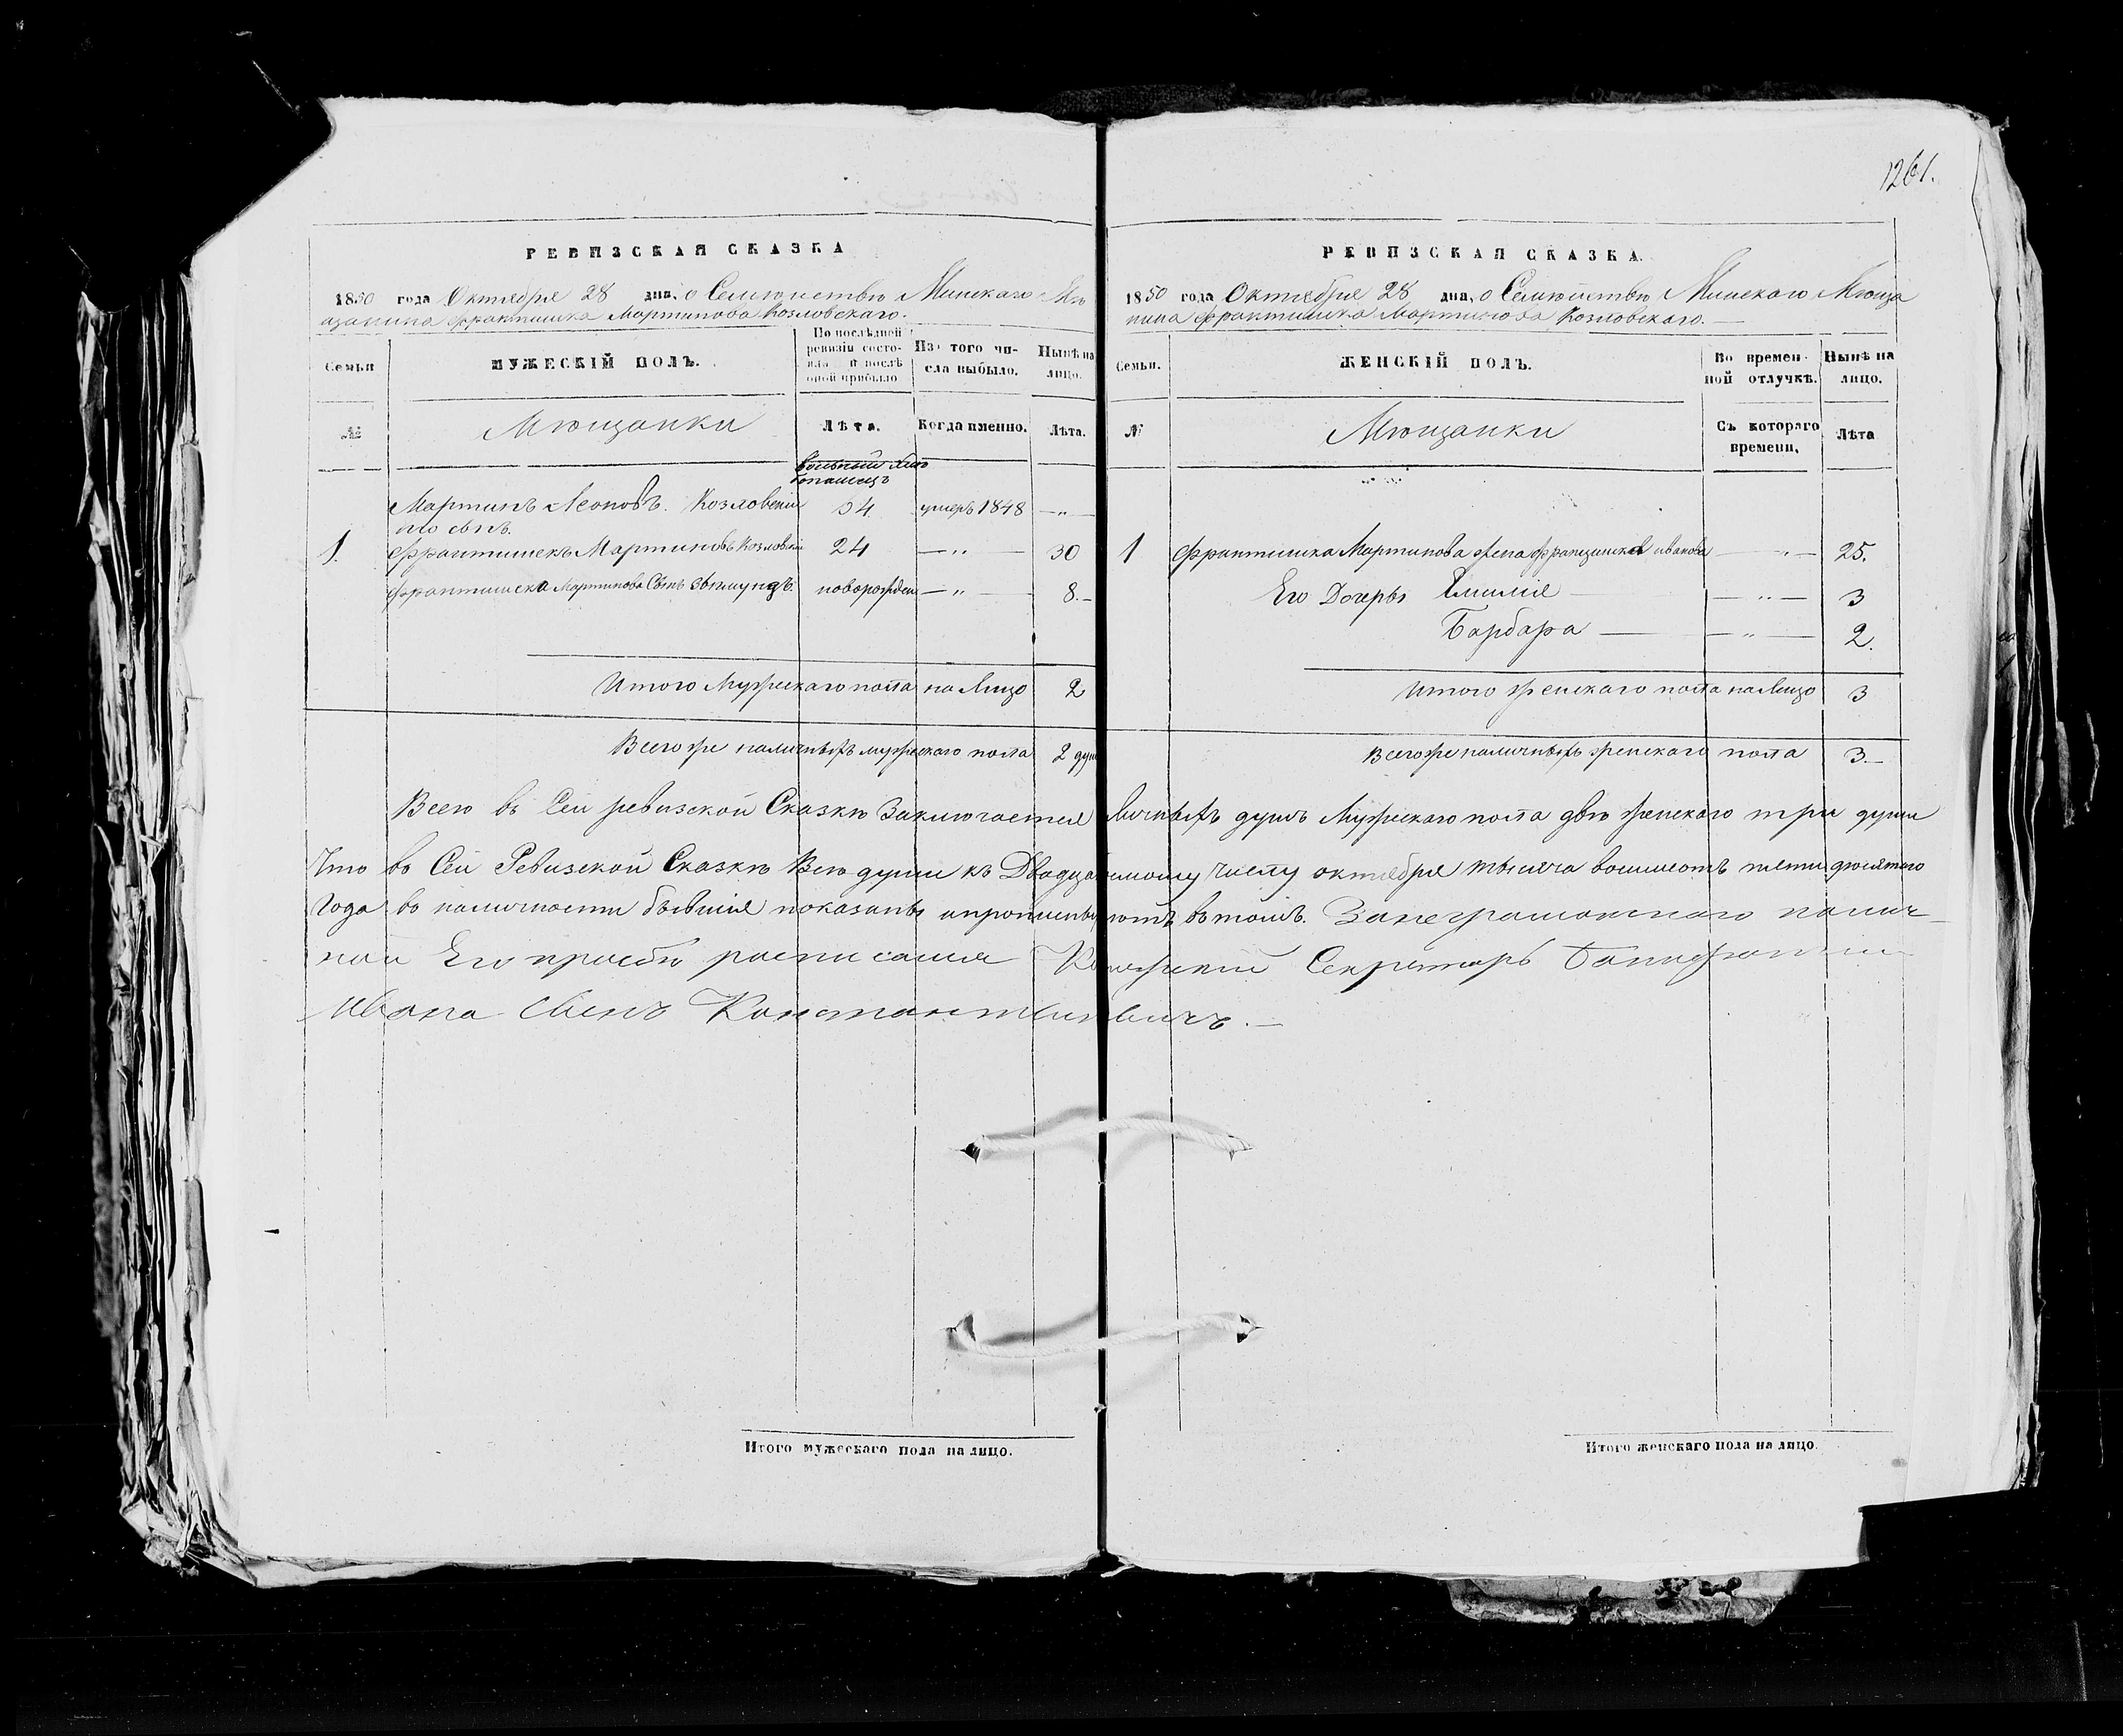 1261.
РЕВИЗСКАЯ СКАЗКА
1850 года Октября 28 дня, о Семѣйствѣ Минскаго Мѣ
щанина Франтишка Мартинова Козловскаго.
Семьи
МУЖЕСКІЙ ПОЛЪ.
По послѣдней
ревизіи состо-
яло и послѣ
оной прибыло
Изъ того чи-
сла выбыло.
Нынѣ на
лицо.
№
Мѣщанки
Лѣта.
Когда именно.
Лѣта.
вольный
Мартинъ Леоновъ. Козловскій 54 умеръ 1848 —„—
его сынъ.
1. Франтишекъ Мартиновъ Козловскій 24 —„— 30
Франтишека Мартинова Сынъ Зыгмундъ. новорожден —„— 8.—
Итого Мужескаго пола на Лицо 2
Всего же наличныхъ мужескаго пола 2 душ
РЕВИЗСКАЯ СКАЗКА.
1850 года Октября 28 дня, о Семѣйствѣ Минскаго Мѣща
нина Франтишка Мартинова Козловскаго. —
Семьи.
ЖЕНСКІЙ ПОЛЪ.
Во времен-
ной отлучкѣ.
Нынѣ на
лицо.
№
Мѣщанки
Съ котораго
времени,
Лѣта
1 Франтишка Мартинова жена Францишка иванова —„— 25.
Его Дочеры Емилія —„— 3
Барбара —„— 2.
Итого женскаго пола на Лицо 3
Всего же наличныхъ женскаго пола 3.—
Всего въ Сей ревизской Сказкѣ Заключается личныхъ душъ Мужескаго пола двѣ женскаго три души
Что въ Сей Ревизской Сказкѣ Все души къ числу октября тысяча восимсотъ пятидесятого
Года въ наличности бывшія показаны въ томъ.
ной Его прозбѣ росписался Секретарь
Ивана Сынъ Константиновичъ. —
Итого мужескаго пола на лицо.
Итого женскаго пола на лицо.